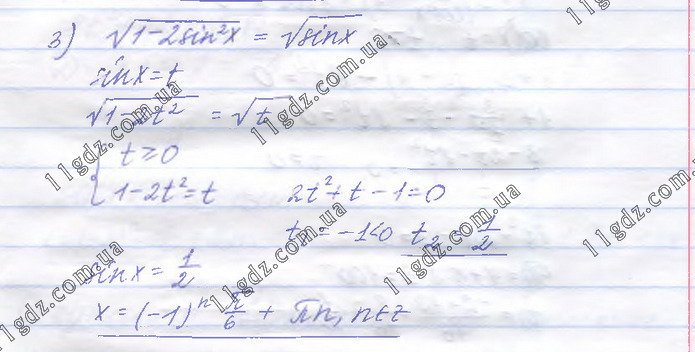 3) √(1-2sin²x) = √(sinx)
sinx=t
√(1-2t²) = √t
{ t≥0
{ 1-2t²=t    2t²+t-1=0
t₁=-1<0  t₂=1/2
sinx=1/2
x=(-1)ⁿ π/6 + πn, n∈z
11gdz.com.ua
11gdz.com.ua
11gdz.com.ua
11gdz.com.ua
11gdz.com.ua
11gdz.com.ua
11gdz.com.ua